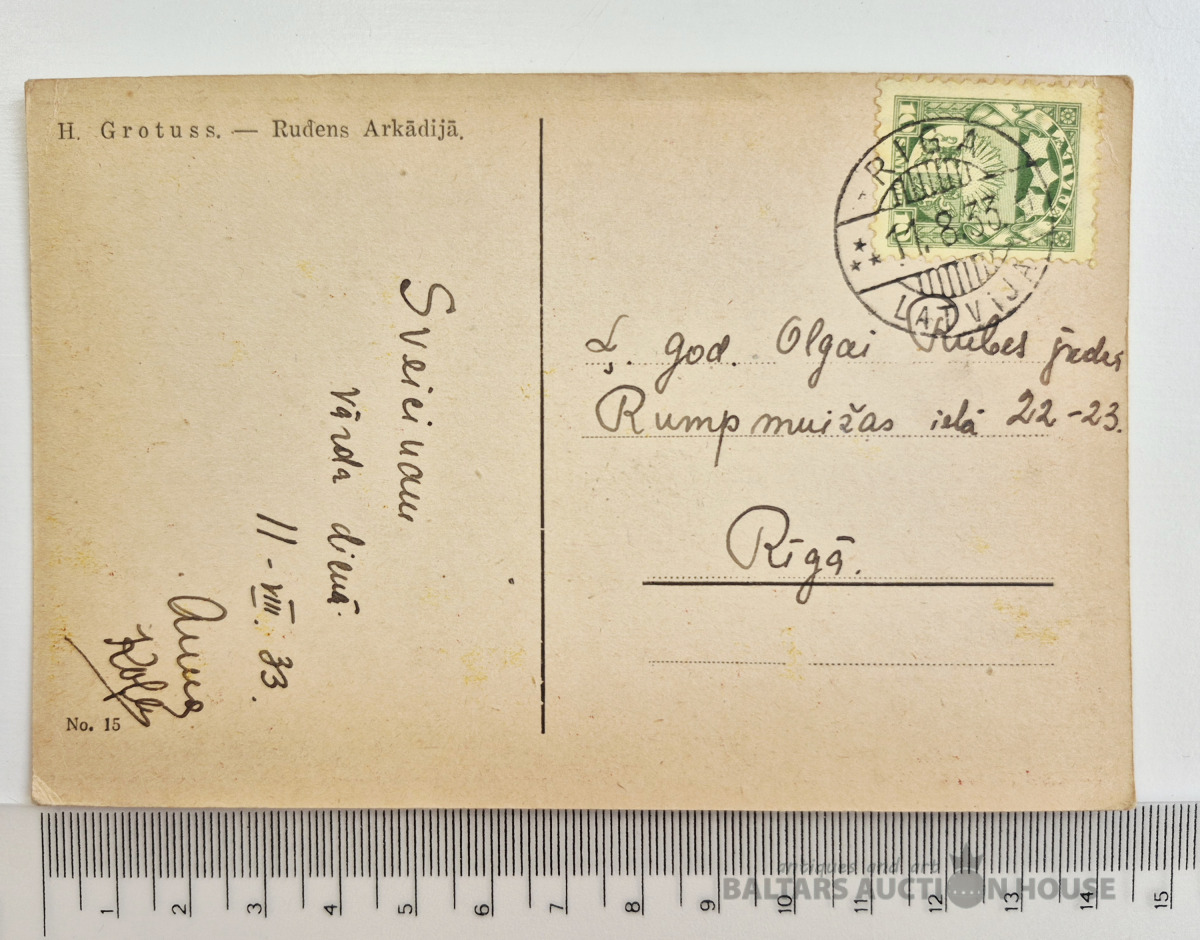 H. Grotuss. — Rudens Arkādijā.
RIGA
11. 8. 33
LATVIJA
LATVIJA
Ļ. god. Olgai
Rumpmuižas ielā 22-23.
Rīgā.
Sveicinam
Vārda dienā.
11-VIII. 33.
Anna
No. 15
1 2 3 4 5 6 7 8 9 10 11 12 13 14 15
antiques and art
BALTARS AUCTION HOUSE